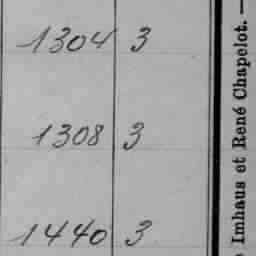 1304 3
1308 3
1440 3
Imhaus et René Chapelot. —